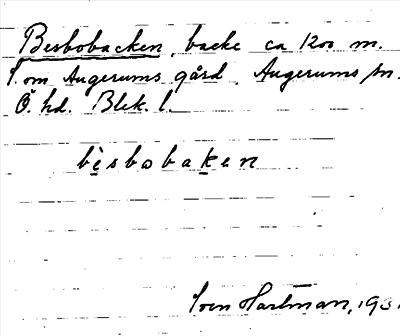 Besbobacken, backe ca 1200 m.
S. om Augerums gård. Augerums sn.
Ö. hd. Blek. l.
bèsbobaken
Sven Hartman, 193